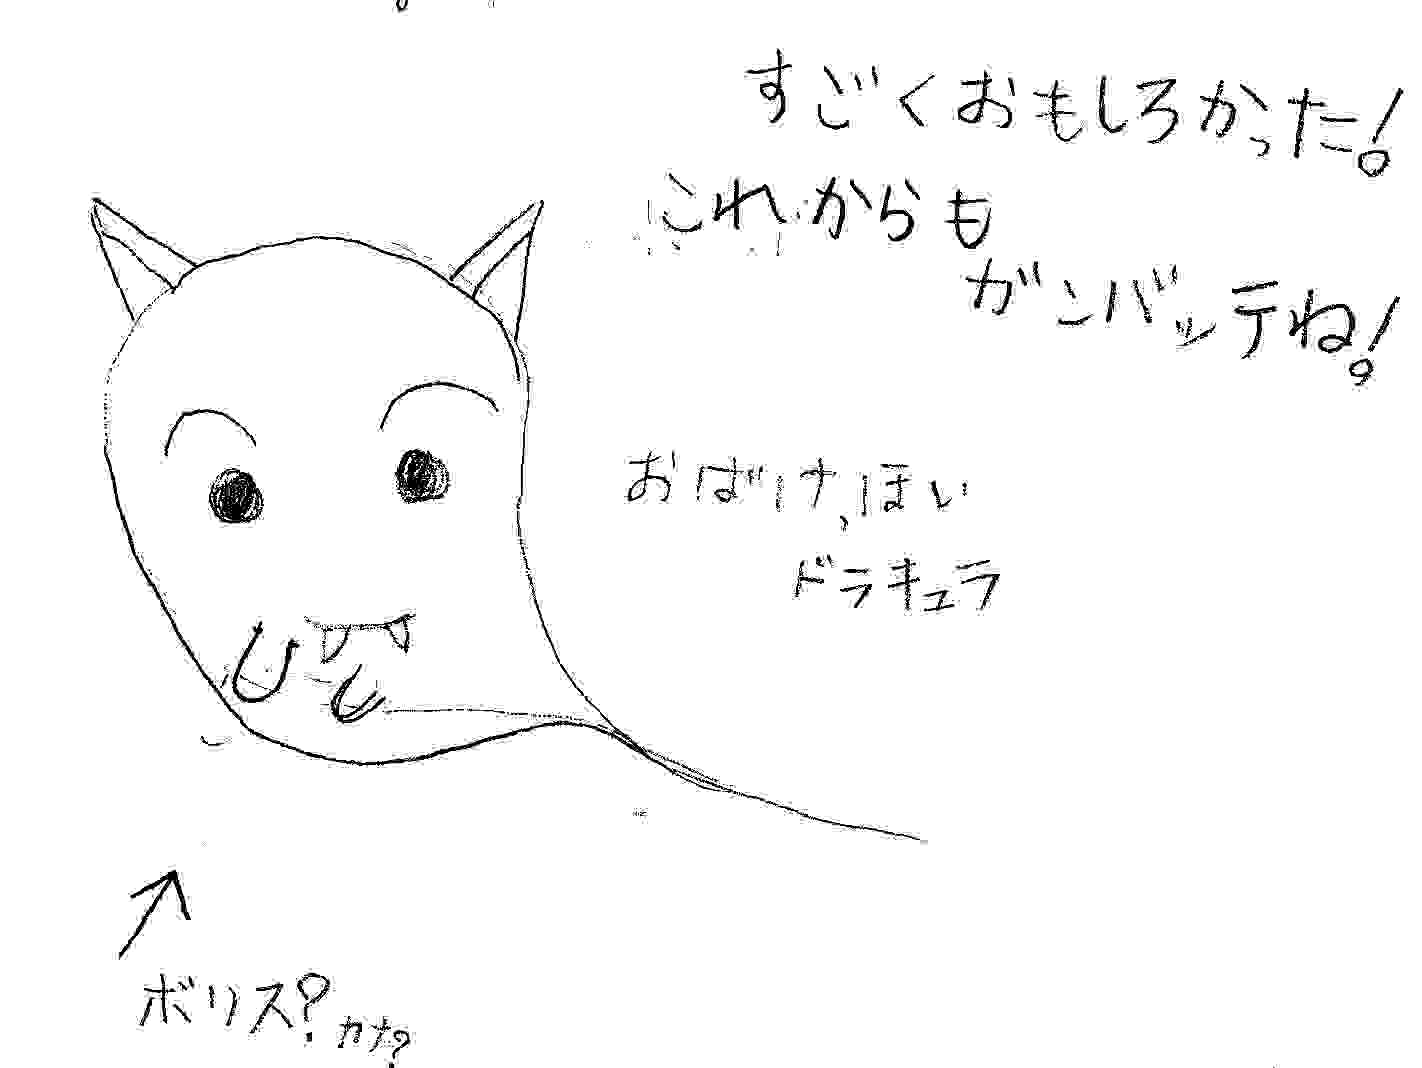 すごくおもしろかった!
これからも
ガンバッテね!
おばけ、ほい
ドラキュラ
ボリス?カナ?